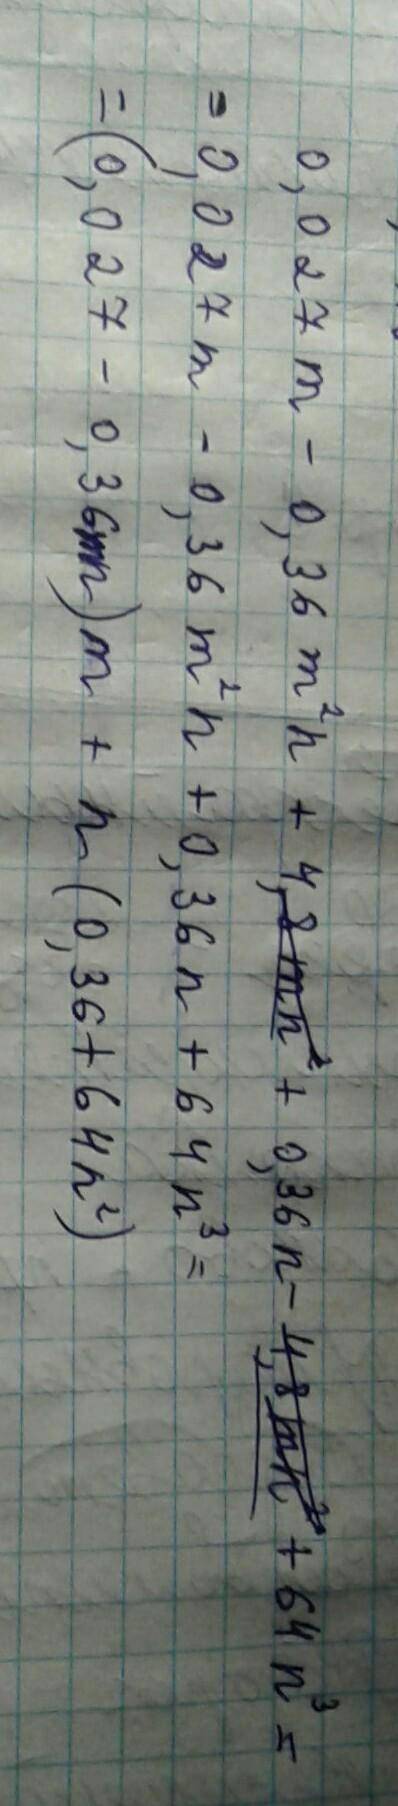 0,027m - 0,36m²n + 4,8mn² + 0,36n - 4,8mn² + 64n³ =
= 0,027m - 0,36m²n + 0,36n + 64n³ =
= (0,027 - 0,36mn)m + n(0,36 + 64n²)